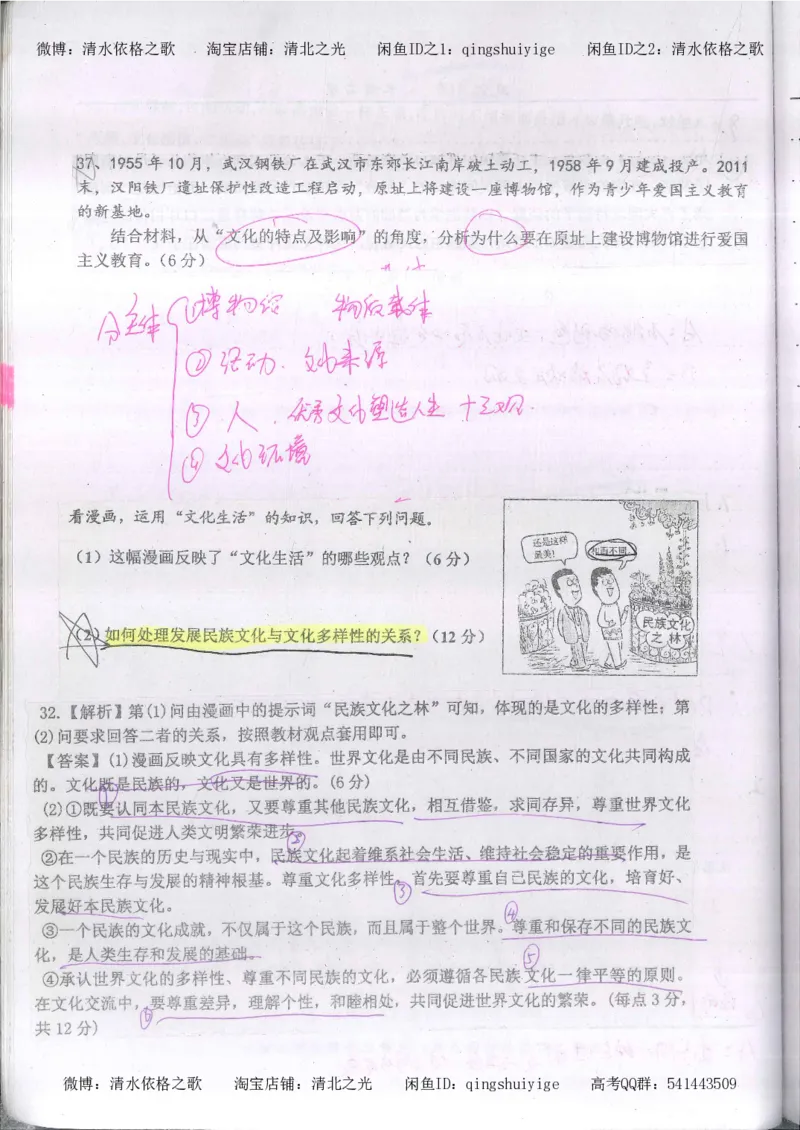 微博：清水依格之歌 淘宝店铺：清北之光 闲鱼ID之1：qingshuiyige 闲鱼ID之2：清水依格之歌
37、1955年10月，武汉钢铁厂在武汉市东郊长江南岸破土动工，1958年9月建成投产。2011
末，汉阳铁厂遗址保护性改造工程启动，原址上将建设一座博物馆，作为青少年爱国主义教育
的新基地。
结合材料，从“文化的特点及影响”的角度，分析为什么要在原址上建设博物馆进行爱国
主义教育。（6分）
分主体
①博物馆 物质载体
②活动．文化来源
③人．优秀文化塑造人生 十三观
④文化环境
看漫画，运用“文化生活”的知识，回答下列问题。
（1）这幅漫画反映了“文化生活”的哪些观点？（6分）
（2）如何处理发展民族文化与文化多样性的关系？（12分）
还是这样
最美！
和而不同
民族文化
之林
32.【解析】第(1)问由漫画中的提示词“民族文化之林”可知，体现的是文化的多样性；第
(2)问要求回答二者的关系，按照教材观点套用即可。
【答案】(1)漫画反映文化具有多样性。世界文化是由不同民族、不同国家的文化共同构成
的。文化既是民族的，文化又是世界的。(6分)
(2)①既要认同本民族文化，又要尊重其他民族文化，相互借鉴，求同存异，尊重世界文化
多样性，共同促进人类文明繁荣进步。
②在一个民族的历史与现实中，民族文化起着维系社会生活、维持社会稳定的重要作用，是
这个民族生存与发展的精神根基。尊重文化多样性，首先要尊重自己民族的文化，培育好、
发展好本民族文化。
③一个民族的文化成就，不仅属于这个民族，而且属于整个世界。尊重和保存不同的民族文
化，是人类生存和发展的基础。
④承认世界文化的多样性、尊重不同民族的文化，必须遵循各民族文化一律平等的原则。
在文化交流中，要尊重差异，理解个性，和睦相处，共同促进世界文化的繁荣。(每点3分，
共12分)
微博：清水依格之歌 淘宝店铺：清北之光 闲鱼ID：qingshuiyige 高考QQ群：541443509